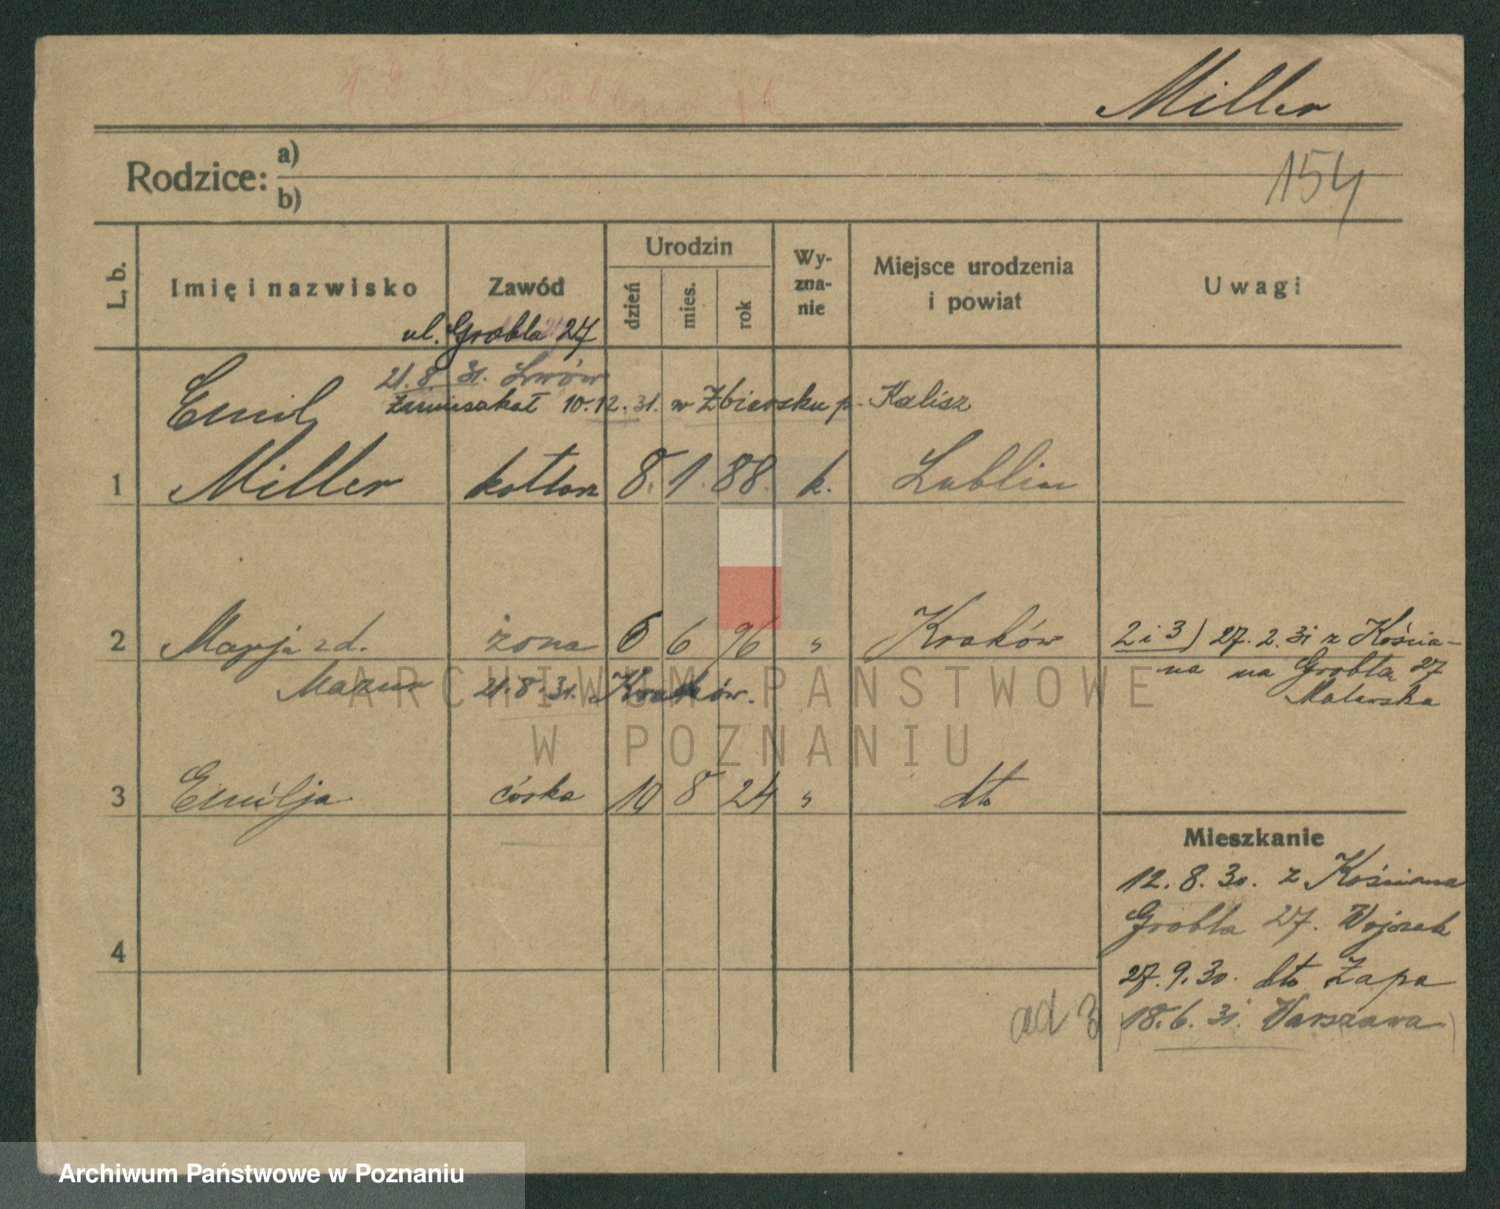 Miller
154
Rodzice: a)
b)
L. b. Imię i nazwisko Zawód Urodzin dzień mies. rok Wyznanie Miejsce urodzenia i powiat Uwagi
ul. Grobla 27
21. 8. 31. Lwów
zamieszkał 10.12.31. w Zbiersku p. Kalisz
1 Emil Miller kotlarz 8. 1. 88. k. Lublin
2 Marja zd. żona 6 6 96 " Kraków 2 i 3) 27. 2. 31 z Kościa-
Mazur 21. 8. 31. Kraków. na na Grobla 27
Malewska
3 Emilja córka 10 8 24 " dto
4
Mieszkanie
12. 8. 30. z Kościana
Grobla 27. Wojczak
27. 9. 30. dto Zapa
ad 3 (18. 6. 31. Warszawa)
ARCHIWUM PAŃSTWOWE
W POZNANIU
Archiwum Państwowe w Poznaniu